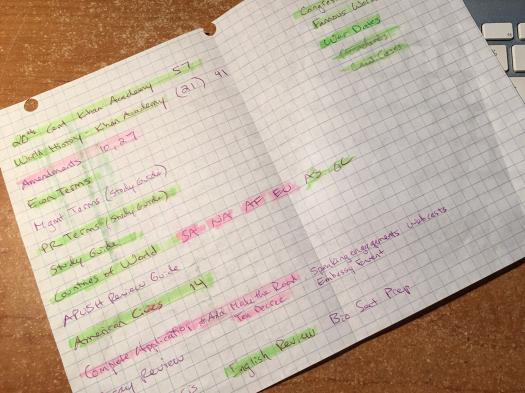 20th Cent Khan Academy 57
World History - Khan Academy (21) 91
Amendments 10, 27
Econ Terms
Mgmt Terms (Study Guide)
PR Terms (Study Guide)
Study Guide
Countries of World SA NA AF EU AS OC
APUSH Review Guide
American Cities 14
Complete Application Add Make the Road
Ten Decree
Review
English Review
Famous Works
War Dates
Court Cases
Speaking engagements
Embassy Event
Bio Seat Prep